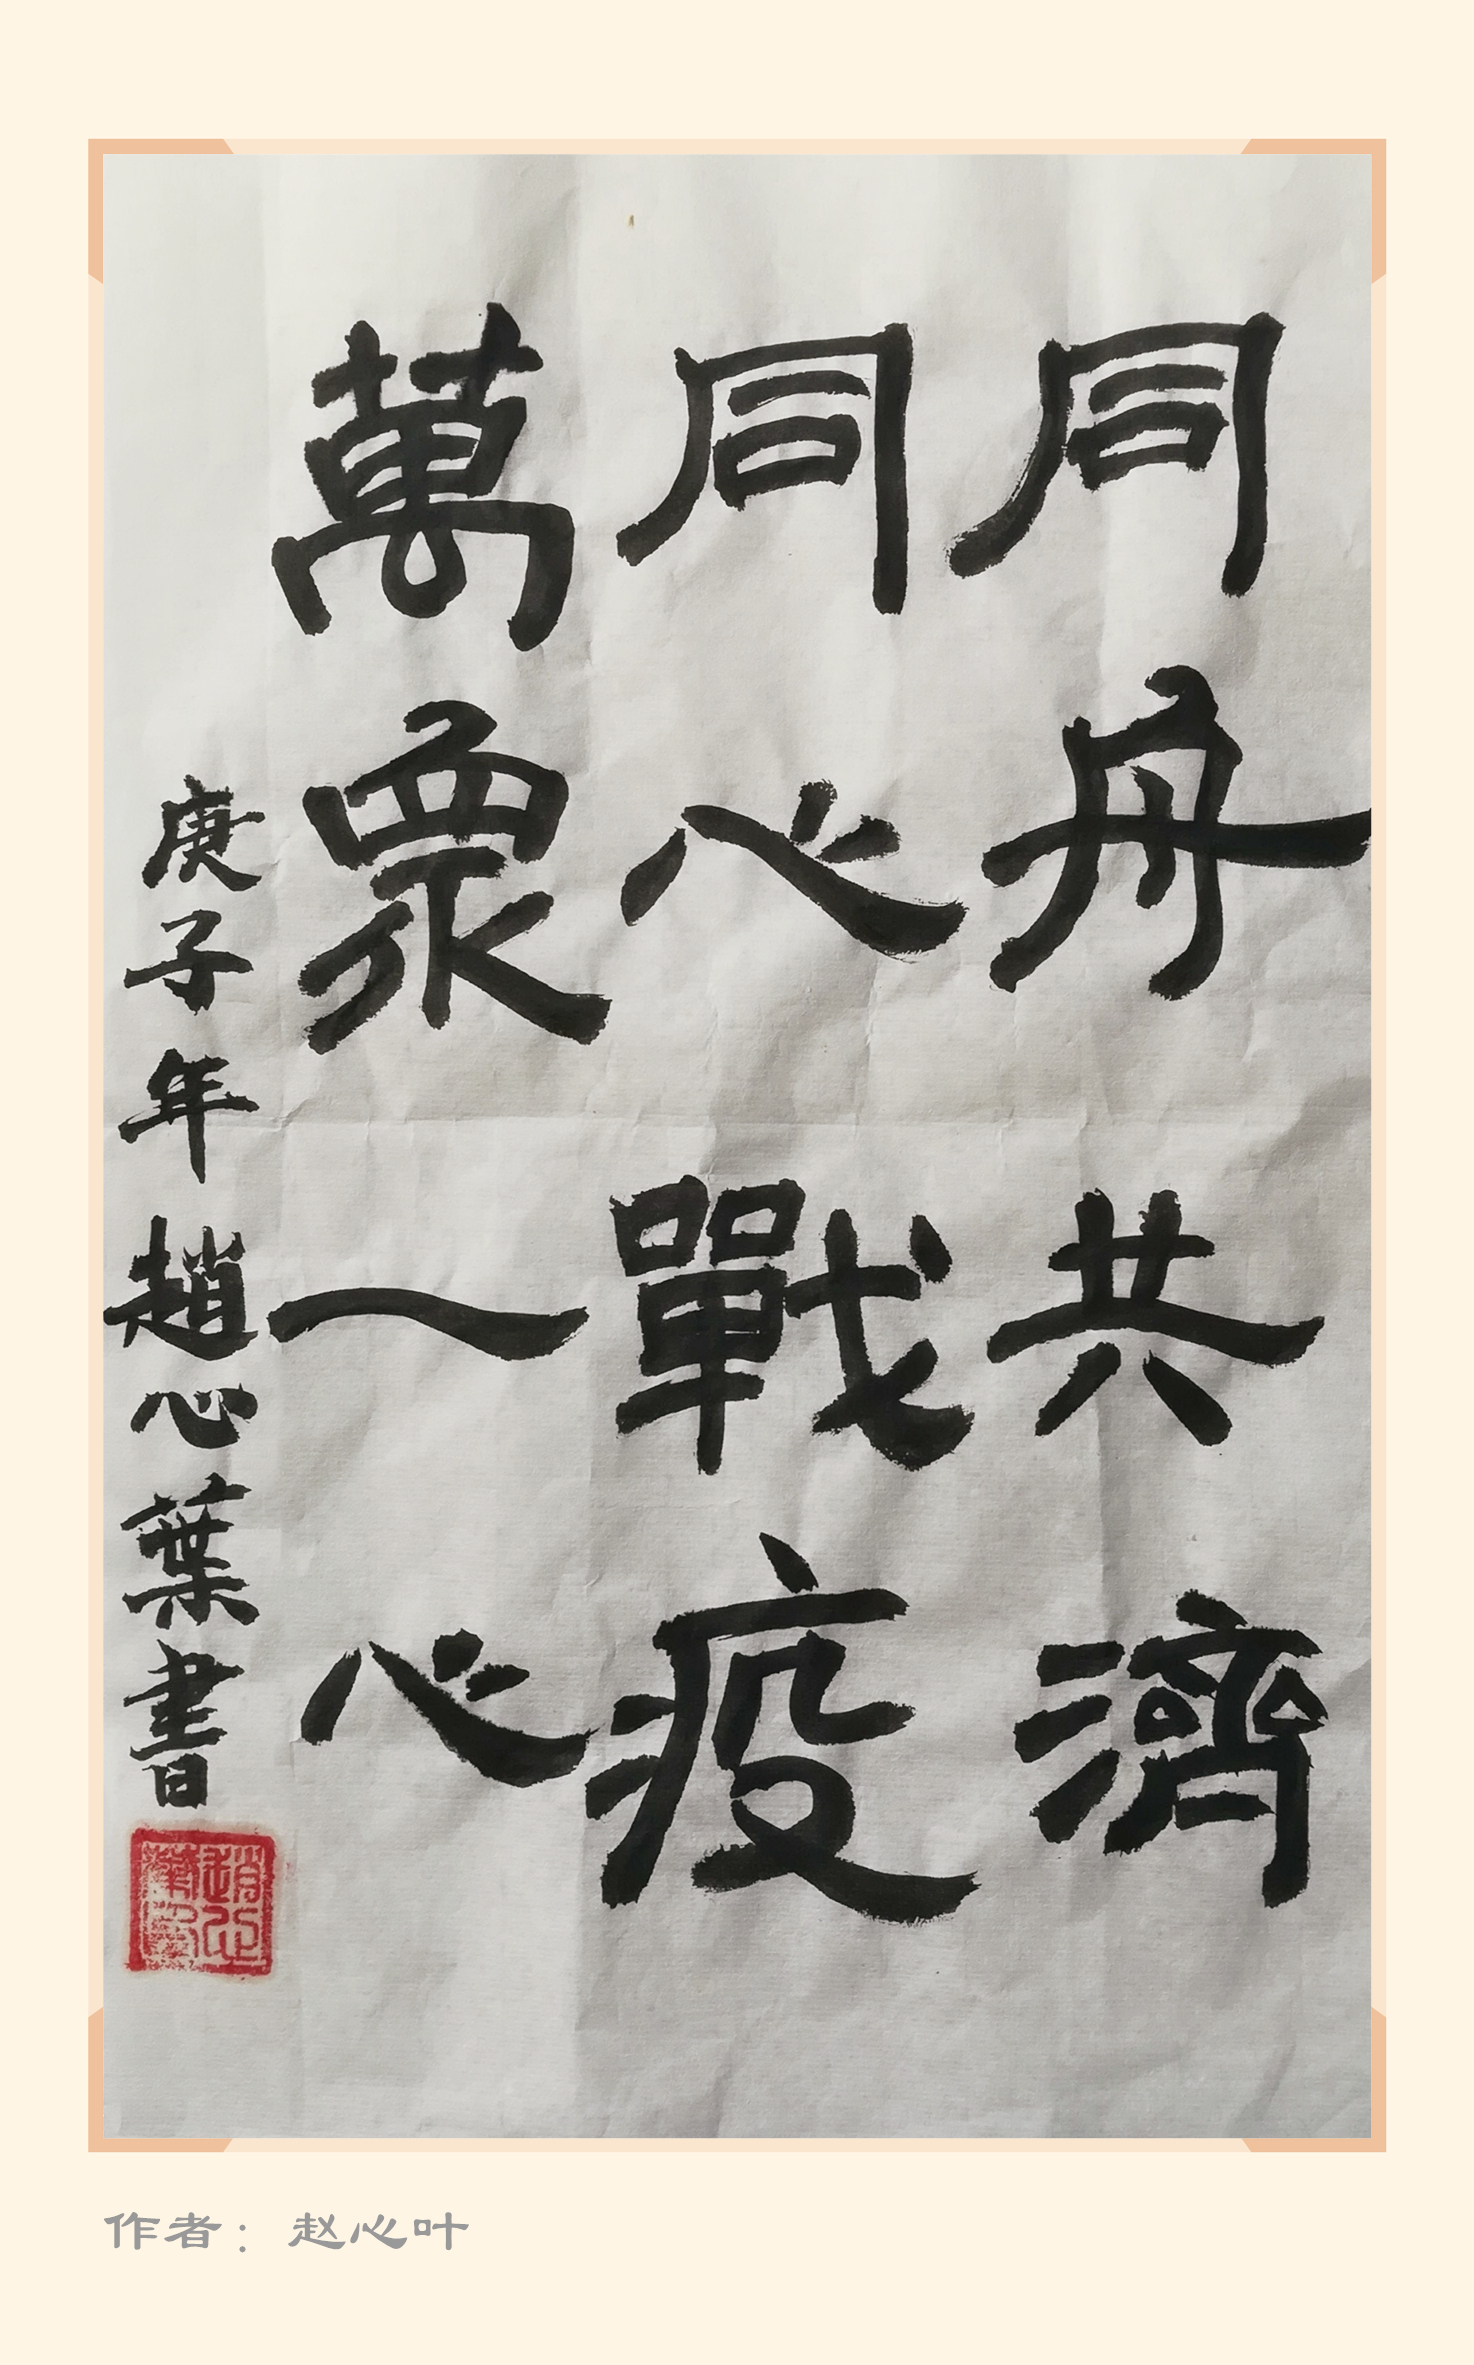 同舟共濟
同心戰疫
萬眾一心
庚子年趙心葉書
趙心葉印
作者：赵心叶